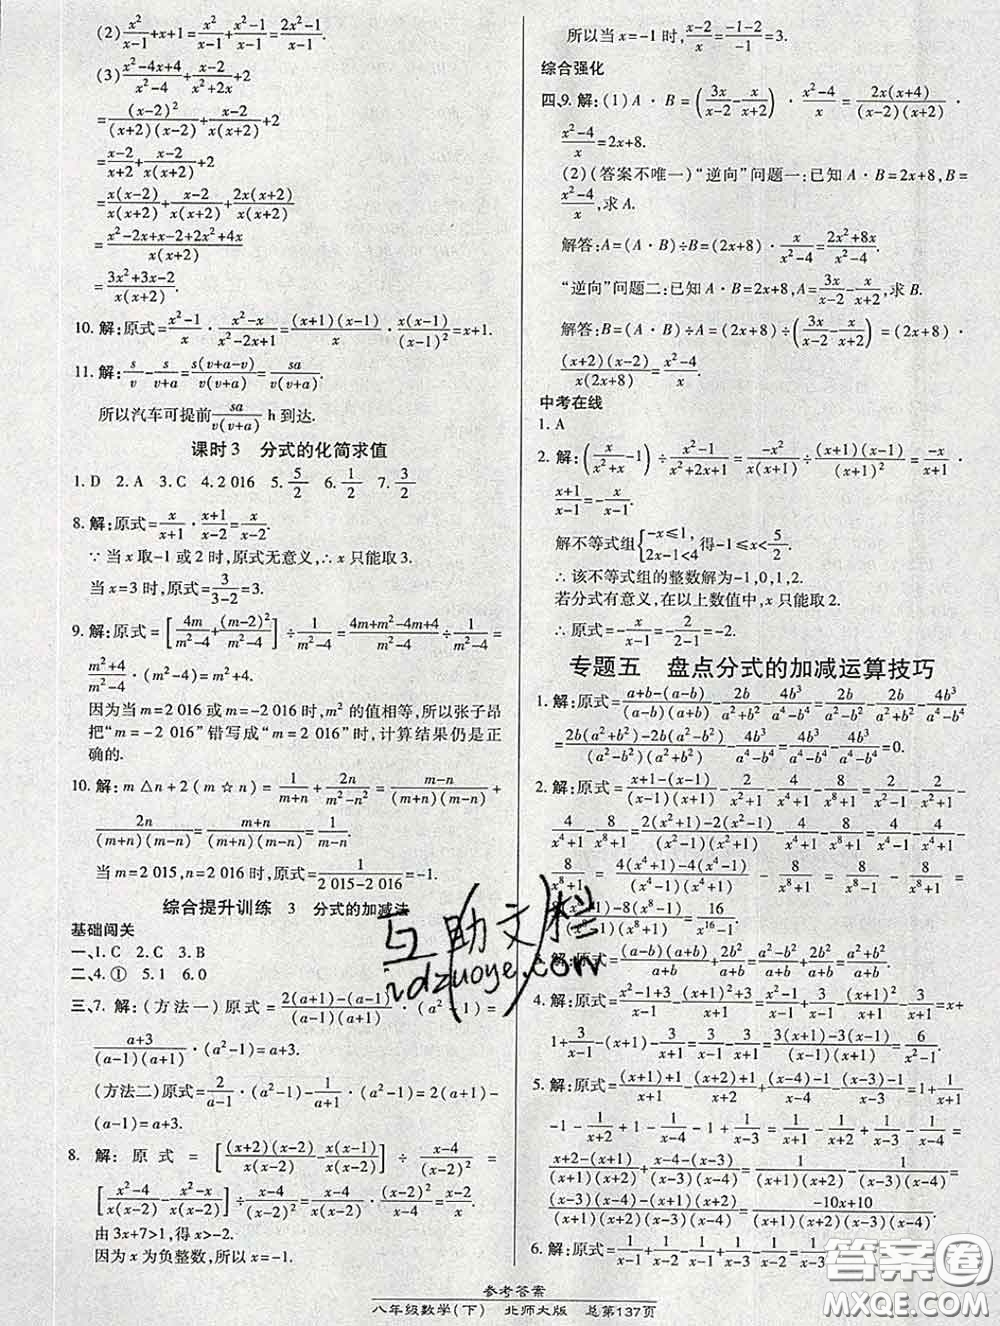 (2) x²/(x-1)+x+1=x²/(x-1)+(x²-1)/(x-1)=(2x²-1)/(x-1).
(3) (x²-4x+4)/(x²-4)+(x-2)/(x²+2x)+2
=(x-2)²/((x+2)(x-2))+(x-2)/(x(x+2))+2
=(x-2)/(x+2)+(x-2)/(x(x+2))+2
=x(x-2)/(x(x+2))+(x-2)/(x(x+2))+2x(x+2)/(x(x+2))
=(x²-2x+x-2+2x²+4x)/(x(x+2))
=(3x²+3x-2)/(x(x+2)).
10. 解:原式=(x²-1)/x·(x²-x)/(x²-2x+1)=(x+1)(x-1)/x·x(x-1)/(x-1)²=x+1.
11. 解:s/v-s/(v+a)=s(v+a-v)/(v(v+a))=sa/(v(v+a)).
所以汽车可提前sa/(v(v+a)) h 到达.
课时3 分式的化简求值
1. D 2. A 3. C 4. 2 016 5. 5/2 6. 1/2 7. 3/2
8. 解:原式=x/(x+1)·(x+1)/(x-2)=x/(x-2).
∵当 x 取-1或2时,原式无意义,∴x 只能取3.
当 x=3 时,原式=3/(3-2)=3.
9. 解:原式=[4m/(m²-4)+(m-2)²/(m²-4)]÷1/(m²-4)=(4m+m²-4m+4)/(m²-4)÷1/(m²-4)=
(m²+4)/(m²-4)
因为当 m=2 016 或 m=-2 016 时,m² 的值相等,所以张子昂
把“m=-2 016”错写成“m=2 016”时,计算结果仍是正
确的.
10. 解:m△n+2(m☆n)=1/(m+n)+2n/(m²-n²)=(m-n)/((m+n)(m-n))+
2n/((m+n)(m-n))=(m+n)/((m+n)(m-n))=1/(m-n).
当 m=2 015,n=2 016 时,原式=1/(2 015-2 016)=-1.
综合提升训练 3 分式的加减法
基础闯关
一、1. C 2. C 3. B
二、4. ① 5. 1 6. 0
三、7. 解:(方法一)原式=(2(a+1)-(a-1))/((a-1)(a+1))·(a²-1)=
(a+3)/((a-1)(a+1))·(a²-1)=a+3.
(方法二)原式=2/(a-1)·(a²-1)-1/(a+1)·(a²-1)=2(a+1)
-(a-1)=a+3.
8. 解:原式=[(x+2)(x-2)/(x(x-2))-x(x-1)/(x(x-2))]÷(x-4)/(x-2)²=
[(x²-4)/(x(x-2))-(x²-x)/(x(x-2))]÷(x-4)/(x-2)²=(x-4)/(x(x-2))·(x-2)²/(x-4)=(x-2)/x.
由 3x+7>1,得 x>-2.
因为 x 为负整数,所以 x=-1.
所以当 x=-1 时,(x-2)/x=(-1-2)/(-1)=3.
综合强化
四、9. 解:(1)A·B=(3x/(x-2)-x/(x+2))·(x²-4)/x=2x(x+4)/((x-2)(x+2))·
(x²-4)/x=2x+8.
(2)(答案不唯一)“逆向”问题一:已知 A·B=2x+8,B=
(x²-4)/x,求 A.
解答:A=(A·B)÷B=(2x+8)·x/(x²-4)=(2x²+8x)/(x²-4).
“逆向”问题二:已知 A·B=2x+8,A=3x/(x-2)-x/(x+2),求 B.
解答:B=(A·B)÷A=(2x+8)÷(3x/(x-2)-x/(x+2))=(2x+8)·
(x+2)(x-2)/(x(2x+8))=(x²-4)/x.
中考在线
1. A
2. 解:(x/(x²+x)-1)÷(x²-1)/(x²+2x+1)=-x²/(x(x+1))÷(x+1)(x-1)/(x+1)²=-x/(x+1)·
(x+1)/(x-1)=-x/(x-1).
解不等式组{-x≤1, 2x-1<4 得-1≤x<5/2.
∴该不等式组的整数解为-1,0,1,2.
若分式有意义,在以上数值中,x 只能取2.
∴原式=-x/(x-1)=-2/(2-1)=-2.
专题五 盘点分式的加减运算技巧
1. 解:原式=(a+b-(a-b))/((a-b)(a+b))-2b/(a²+b²)-4b³/(a⁴-b⁴)=2b/(a²-b²)-2b/(a²+b²)-4b³/(a⁴-b⁴)
=(2b(a²+b²)-2b(a²-b²))/((a²-b²)(a²+b²))-4b³/(a⁴-b⁴)=4b³/(a⁴-b⁴)-4b³/(a⁴-b⁴)=0.
2. 解:原式=(x+1-(x-1))/((x-1)(x+1))-2/(x²+1)-4/(x⁴+1)-8/(x⁸+1)=2/(x²-1)-2/(x²+1)-
4/(x⁴+1)-8/(x⁸+1)=(2(x²+1)-2(x²-1))/((x²-1)(x²+1))-4/(x⁴+1)-8/(x⁸+1)=4/(x⁴-1)-4/(x⁴+1)-
8/(x⁸+1)=(4(x⁴+1)-4(x⁴-1))/((x⁴-1)(x⁴+1))-8/(x⁸+1)=8/(x⁸-1)-8/(x⁸+1)=
+1)-8(x⁸-1)/(x⁸+1)=16/(x¹⁶-1).
解:原式=(a-b)(a+b)/(a+b)+(a²+b²)/(a+b)=(a²-b²+a²+b²)/(a+b)=2a²/(a+b).
4. 解:原式=(x²-1+3)/(x-1)-((x+1)²+3)/(x+1)=(x²-1)/(x-1)+3/(x-1)-(x+1)²/(x+1)-3/(x+1)=x+
1+3/(x-1)-(x+1)-3/(x+1)=3/(x-1)-3/(x+1)=(3(x+1)-3(x-1))/((x-1)(x+1))=6/(x²-1).
5. 解:原式=((x+1)+1)/(x+1)-((x+2)+1)/(x+2)+((x-4)-1)/(x-4)-((x-3)-1)/(x-3)=1+1/(x+1)
-1-1/(x+2)+1-1/(x-4)-1+1/(x-3)=1/(x+1)-1/(x+2)-1/(x-4)+1/(x-3)=
(x+2-(x+1))/((x+1)(x+2))+(x-4-(x-3))/((x-3)(x-4))=1/((x+1)(x+2))-1/((x-3)(x-4))=
((x-3)(x-4)-(x+1)(x+2))/((x+1)(x+2)(x-3)(x-4))=(-10x+10)/((x+1)(x+2)(x-3)(x-4)).
6. 解:原式=1/x-1/(x+1)+1/(x+1)-1/(x+2)
参考答案
八年级数学(下) 北师大版 总第137页
互助文栏
idzuoye.com
答案圈
MXQE.COM